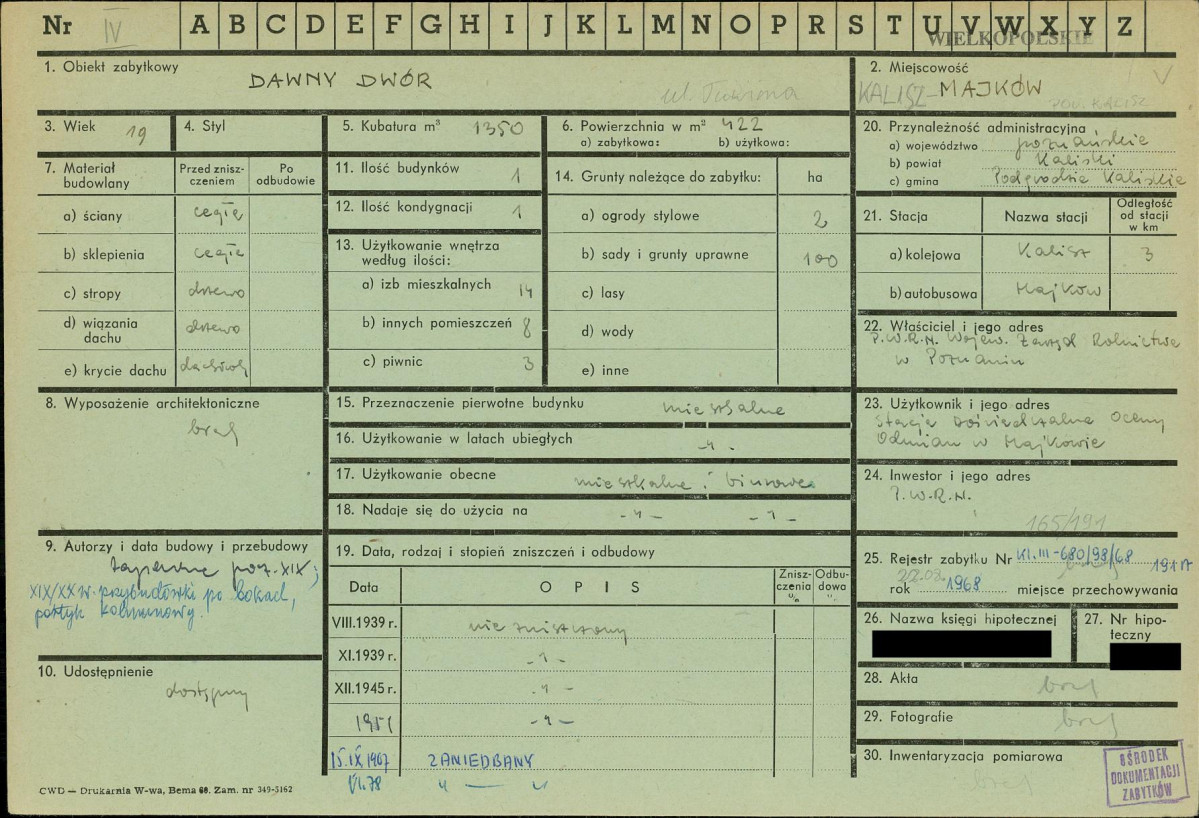 Nr IV A B C D E F G H I J K L M N O P R S T U V W X Y Z
WIELKOPOLSKIE
1. Obiekt zabytkowy
DAWNY DWÓR
2. Miejscowość
KALISZ-MAJKÓW
3. Wiek 19
4. Styl
5. Kubatura m³ 1350
6. Powierzchnia w m² 422
a) zabytkowa: b) użytkowa:
20. Przynależność administracyjna
a) województwo poznańskie
b) powiat Kaliski
c) gmina Podgrodzie Kaliskie
7. Materiał budowlany
Przed znisz-
czeniem
Po
odbudowie
a) ściany cegła
b) sklepienia cegła
c) stropy drzewo
d) wiązania
dachu drzewo
e) krycie dachu dachówką
11. Ilość budynków 1
12. Ilość kondygnacji 1
13. Użytkowanie wnętrza
według ilości:
a) izb mieszkalnych 14
b) innych pomieszczeń 8
c) piwnic 3
14. Grunty należące do zabytku: ha
a) ogrody stylowe 2
b) sady i grunty uprawne 100
c) lasy
d) wody
e) inne
21. Stacja
Nazwa stacji
Odległość
od stacji
w km
a) kolejowa Kalisz 3
b) autobusowa Majków
22. Właściciel i jego adres
P.W.R.N. Wojew. Zarząd Rolnictwa
w Poznaniu
8. Wyposażenie architektoniczne
brak
15. Przeznaczenie pierwotne budynku mieszkalne
16. Użytkowanie w latach ubiegłych -"-
17. Użytkowanie obecne mieszkalne i biurowe
18. Nadaje się do użycia na -"- -"-
23. Użytkownik i jego adres
Stacja Doświadczalna Oceny
Odmian w Majkowie
24. Inwestor i jego adres
P.W.R.N.
165/191
9. Autorzy i data budowy i przebudowy
zapewne pocz. XIX;
XIX/XX w. przybudówki po bokach,
portyk kolumnowy.
19. Data, rodzaj i stopień zniszczeń i odbudowy
Data
OPIS
Znisz-
czenia
%
Odbu-
dowa
%
VIII.1939 r. nie zniszczony
XI.1939 r. -"-
XII.1945 r. -"-
1951 -"-
15.IX.1967 ZANIEDBANY
VI.78 " — "
25. Rejestr zabytku Nr Kl.III-680/98/68 191A
rok 1968 miejsce przechowywania
26. Nazwa księgi hipotecznej
27. Nr hipo-
teczny
10. Udostępnienie
dostępny
28. Akta brak
29. Fotografie brak
30. Inwentaryzacja pomiarowa
brak
OŚRODEK
DOKUMENTACJI
ZABYTKÓW
CWD — Drukarnia W-wa, Bema 60. Zam. nr 349-5162